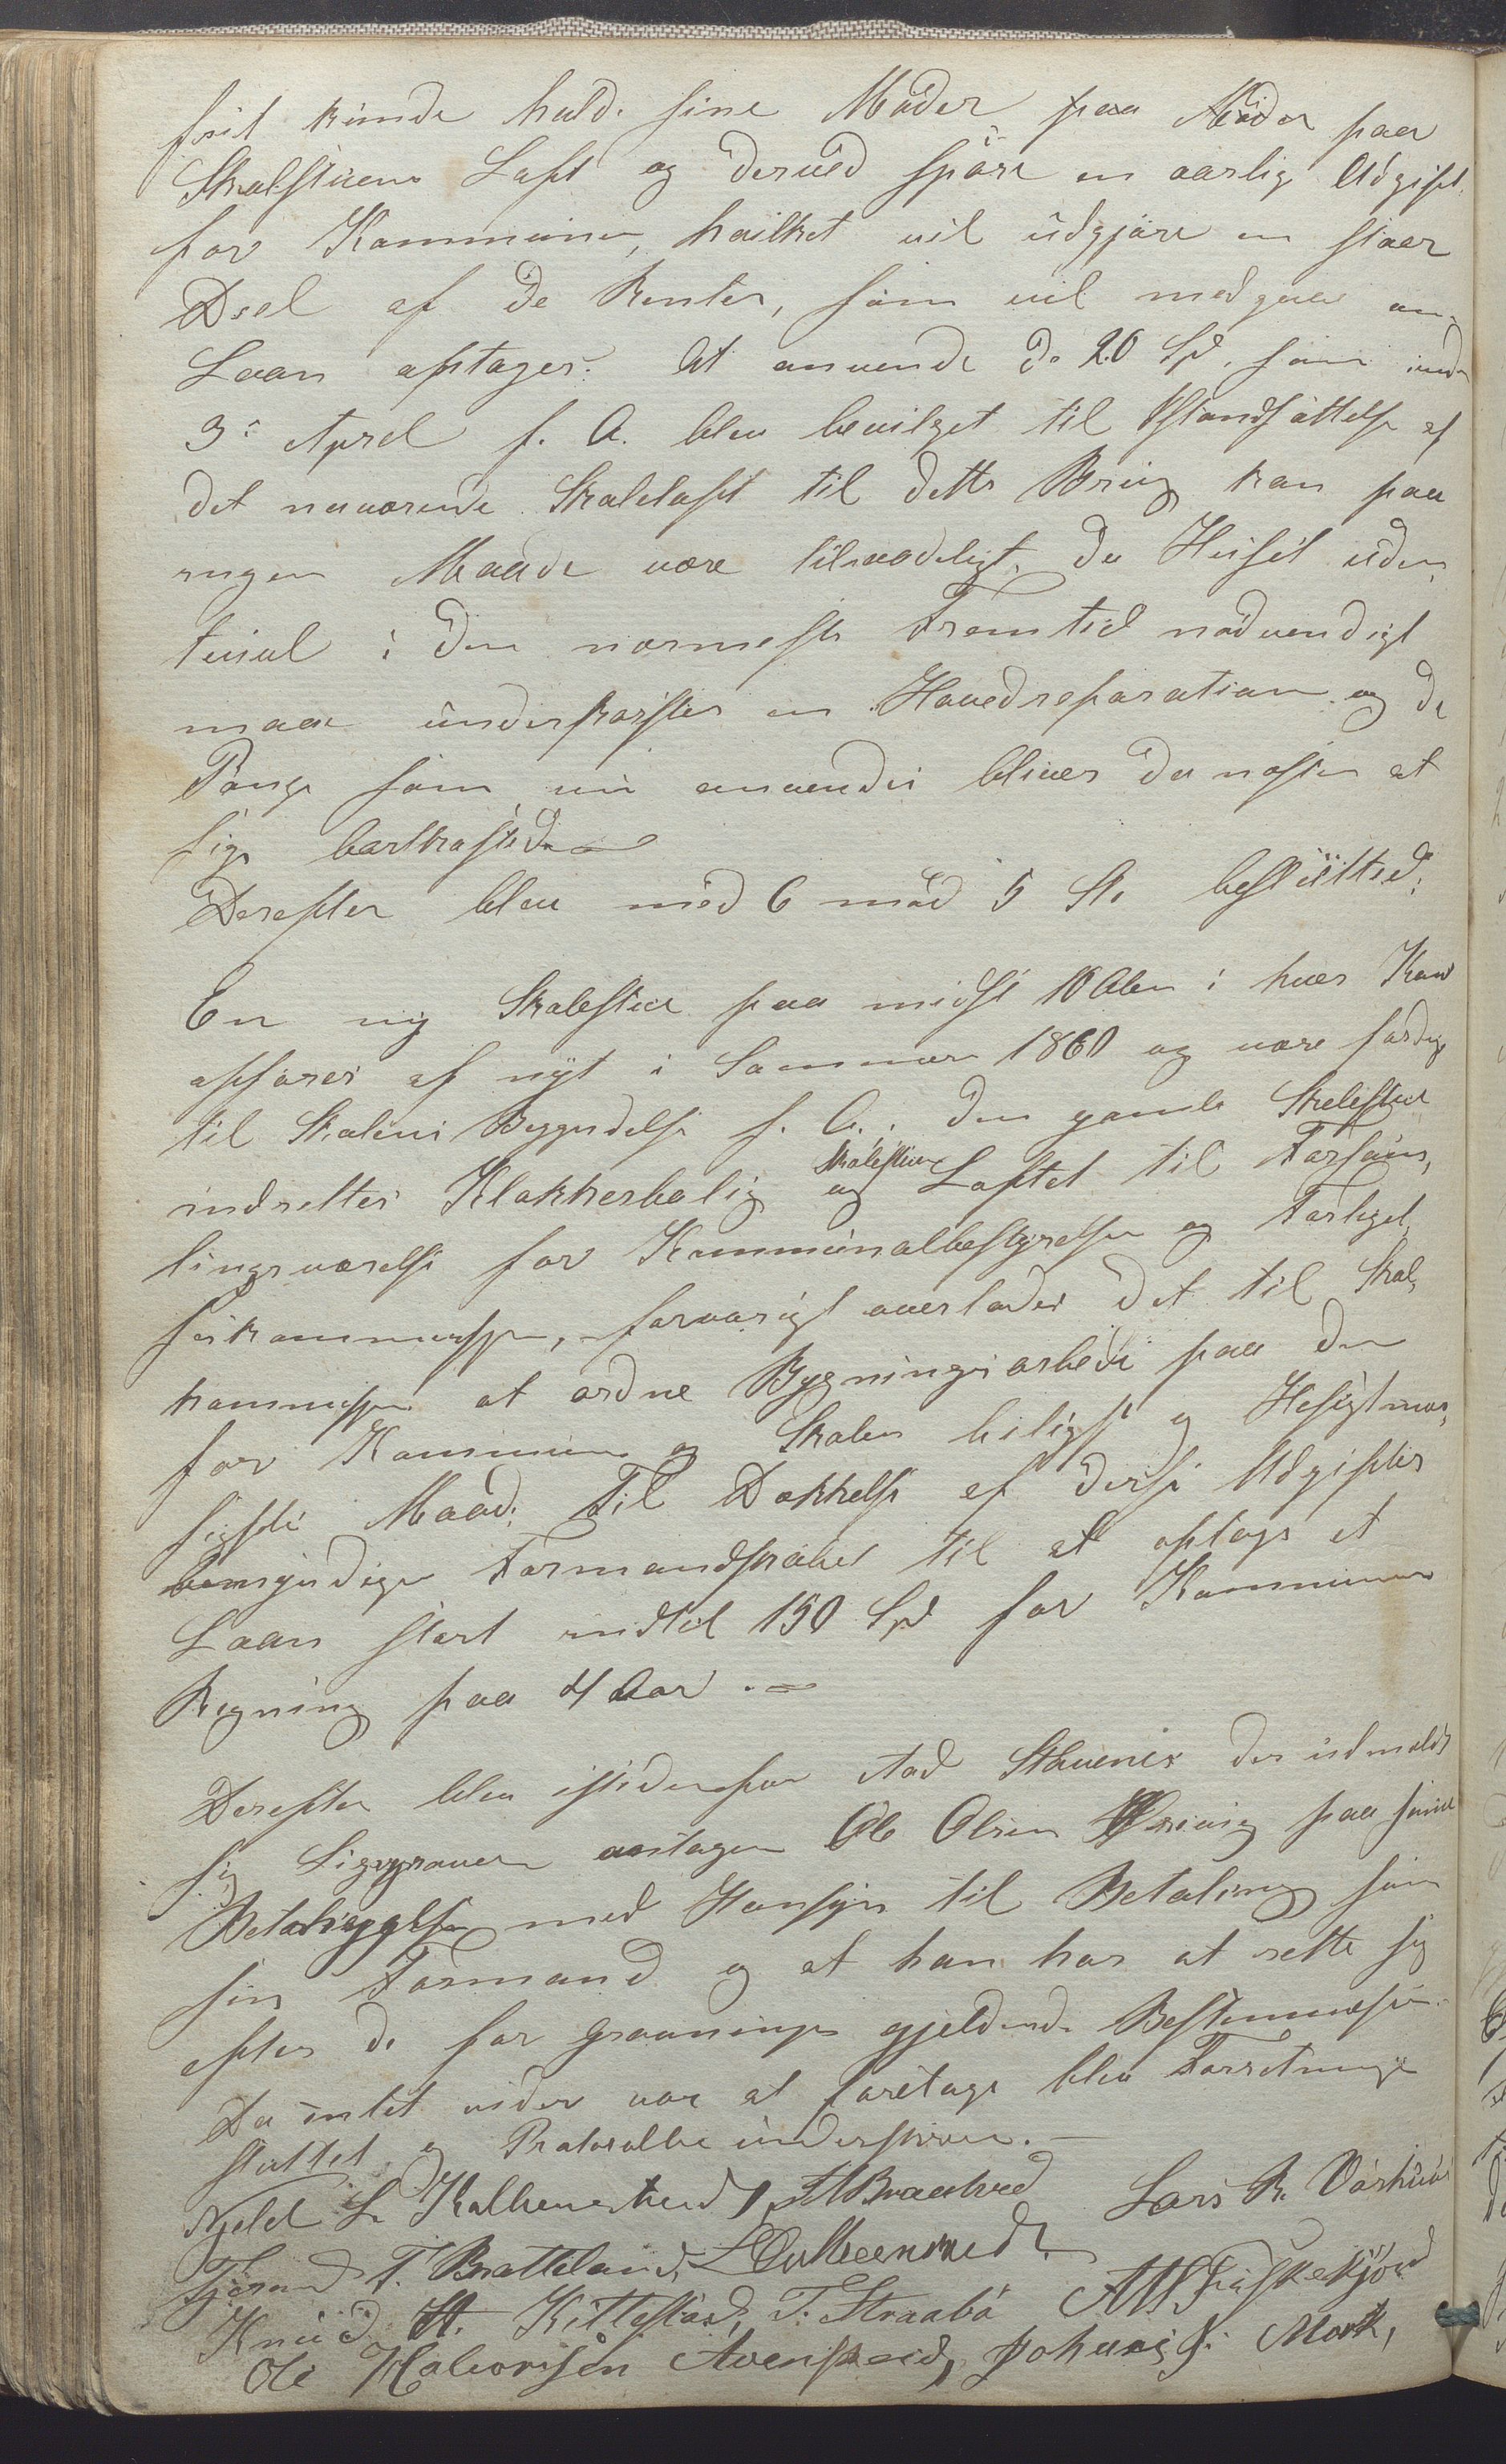 frit kunde hold. sine Møder paa Møder paa
Skolestuens Loft og derved spare en aarlig Udgift
for Kommunen, hvilket vil udgjøre en stoer
Deel af de Renter, som vil medgaa om
Laan optages. At anvende de 20 Spd. som under
3: April f. A. blev bevilget til Istandsættelse af
det nuværende Skoleloft til dette Brug kan paa
ingen Maade være tilraadeligt, da Huset uden
tvivl i den nærmeste Fremtid nødvendigt
maa underkastes en Hovedreparation og de
Penge som nu anvendes bliver da næsten at
sige bortkastede
Derefter blev med 6 mod 5 St. beslutted:
En ny Skolestue paa midst 10 Alen i hver Kant
opføres af nyt i Sommeren 1860 og være færdig
til Skolens Begyndelse f. A.. Den gamle Skolestue
indrettes Klokkerbolig og Skolestuen Loftet til Forsam,
lingsværelse for Kommunalbestyrelsen og Forligel,
seskommissjon, forøvrigt overlades det til Skol,
kommissjon at ordne Bygningsarbeide paa den
for Kommunen og Skolen biligst og Hesigtmæs,
sigste Maade. Til Dækkelse af disse Udgifter
bemyndiges Formandskabet til at optage et
Laan stort indtil 150 Spd for Kommunens
Regning paa 4 Aar.
Derefter blev istedenfor Aad Stuenes der udmeldte
sig Liggraver antagen Ole Olsen paa samme
med Hensyn til Betaling som
sin Formand og at han har at rette sig
efter de for gravningen gjeldende Bestemmelser.
Da intet vider var at foretage blev Forretningen
sluttet og Protocollen underskreven.
Njeld L. Lars R. Vashuus
Tjerand T. Bratteland,
Knud H. Kittelstad, T. Straabø
Ole Halvorsen Johanes J. Mork,